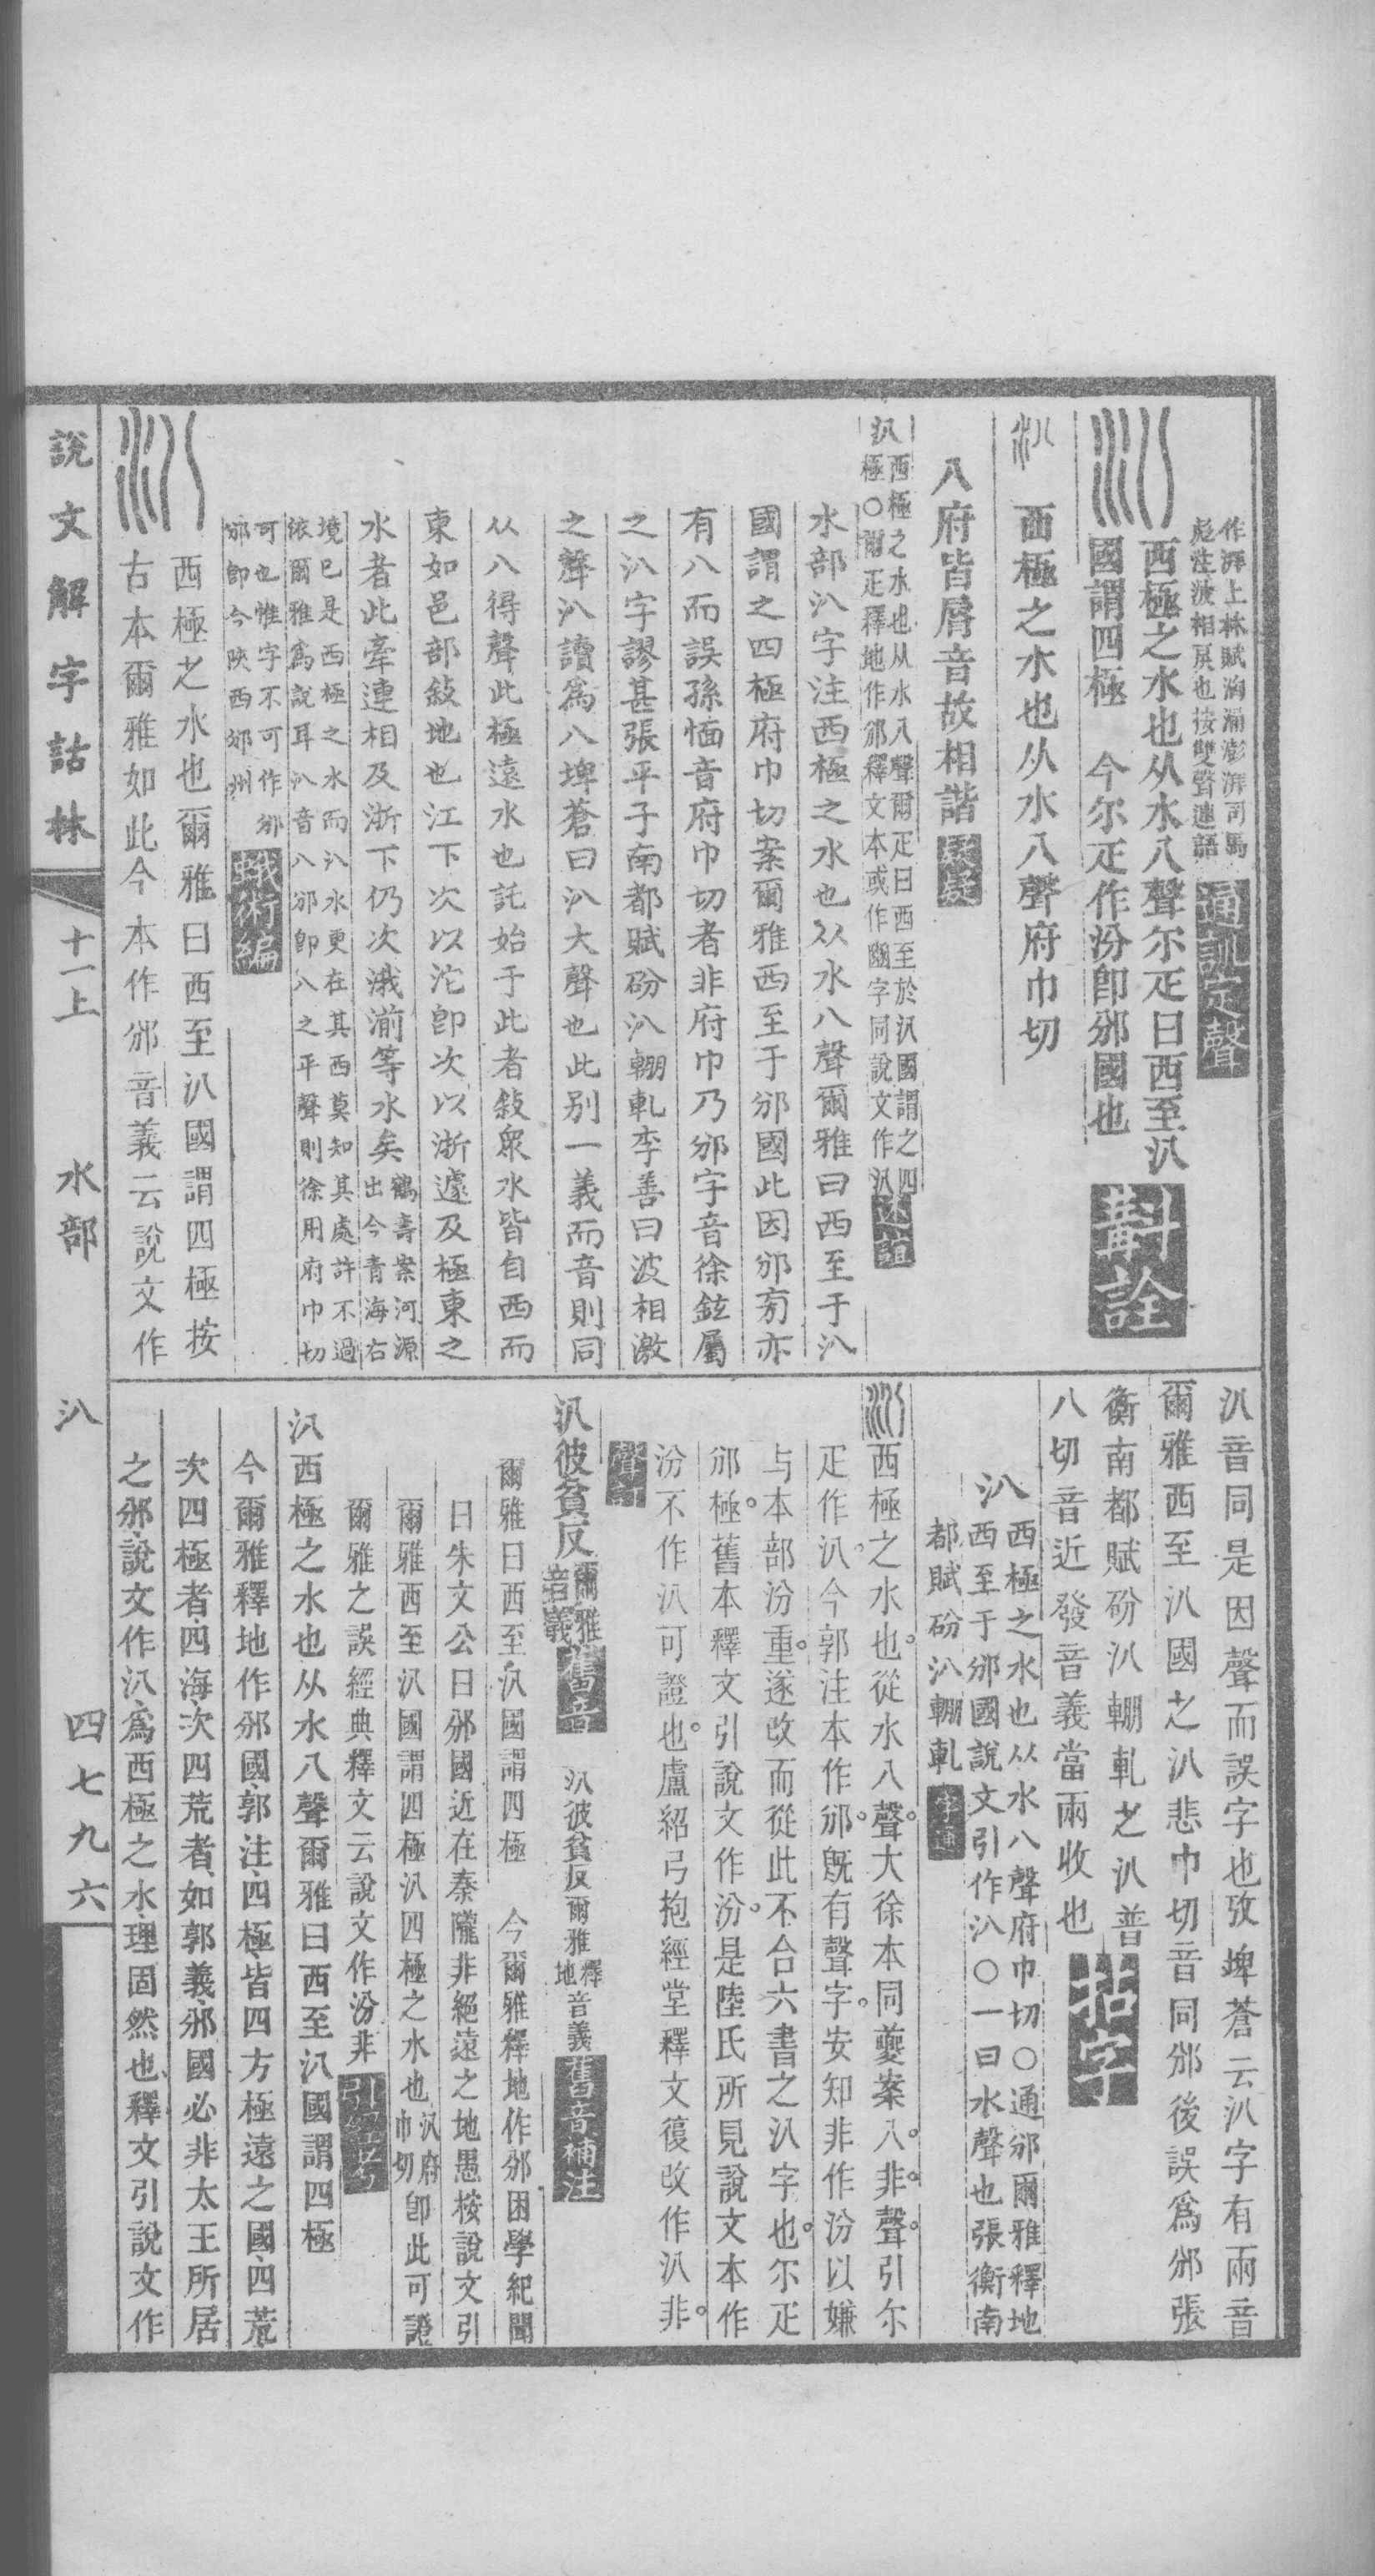 作澎上林賦洶涌澎湃司馬
彪注波相戾也按雙聲連語
通訓定聲
西極之水也从水八聲尔疋曰西至汃
國謂四極　今尔疋作汾卽邠國也
斠詮
汃　西極之水也从水八聲府巾切
八府皆脣音故相諧
汃
西極之水也从水八聲爾疋曰西至於汃國謂之四
極○爾疋釋地作邠釋文本或作豳字同說文作汃
述誼
水部汃字注西極之水也从水八聲爾雅曰西至于汃
國謂之四極府巾切案爾雅西至于邠國此因邠旁亦
有八而誤孫愐音府巾切者非府巾乃邠字音徐鉉屬
之汃字謬甚張平子南都賦砏汃輣軋李善曰波相激
之聲汃讀爲八埤蒼曰汃大聲也此别一義而音則同
从八得聲此極遠水也託始于此者敍衆水皆自西而
東如邑部敍地也江下次以沱卽次以浙遽及極東之
水者此牽連相及浙下仍次涐湔等水矣
鶴壽案河源
出今青海右
境巳是西極之水而汃水更在其西莫知其處許不過
依爾雅爲說耳汃音八邠卽八之平聲則徐用府巾切
可也惟字不可作邠
邠卽今陝西邠州
蛾術編
西極之水也爾雅曰西至汃國謂四極按
古本爾雅如此今本作邠音義云說文作
汃音同是因聲而誤字也攷埤蒼云汃字有兩音
爾雅西至汃國之汃悲巾切音同邠後誤爲邠張
衡南都賦砏汃輣軋之汃普
八切音近發音義當兩收也
汃
西極之水也从水八聲府巾切○通邠爾雅釋地
西至于邠國說文引作汃○一曰水聲也張衡南
都賦砏汃輣軋
字通
西極之水也從水八聲大徐本同夔案八非聲引尔
疋作汃今郭注本作邠旣有聲字安知非作汾以嫌
与本部汾重遂改而從此不合六書之汃字也尔疋
邠極舊本釋文引說文作汾是陸氏所見說文本作
汾不作汃可證也盧紹弓抱經堂釋文復改作汃非
聲訂
汃彼貧反
爾雅
音義
舊音
汃彼貧反爾雅
釋
地
音義
舊音補注
爾雅曰西至汃國謂四極　今爾雅釋地作邠困學紀聞
曰朱文公曰邠國近在秦隴非絕遠之地愚按說文引
爾雅西至汃國謂四極汃四極之水也
汃府
巾切
卽此可證
爾雅之誤經典釋文云說文作汾非
引經攷
汃西極之水也从水八聲爾雅曰西至汃國謂四極
今爾雅釋地作邠國郭注四極皆四方極遠之國四荒
次四極者四海次四荒者如郭義邠國必非太王所居
之邠說文作汃爲西極之水理固然也釋文引說文作
說文解字詁林
十一上
水部
汃
四七九六